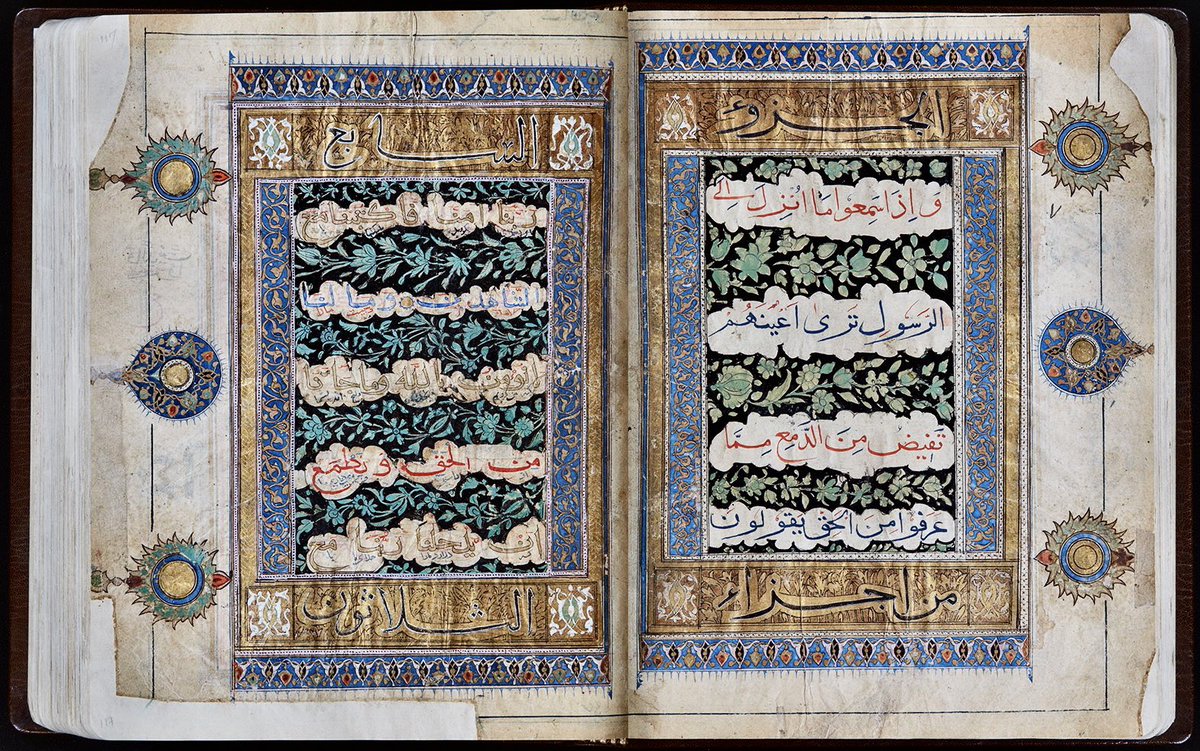 الجزؤ
وَاِذَا سَمِعوا مَا اُنْزِلَ اِلَى
الرَسولِ تَرى اَعْينَهُم
تَفيضُ مِنَ الدَمعِ مِمَّا
عَرفوا مِنَ الحَقِ يَقولونَ
من اجزاء
117
السابع
ربنا امنا فاكتبنا مع
الشاهدين وما لنا
لا نؤمن بالله وما جاءنا
من الحق و نطمع
ان يدخلنا ربنا مع
الثلاثون
117